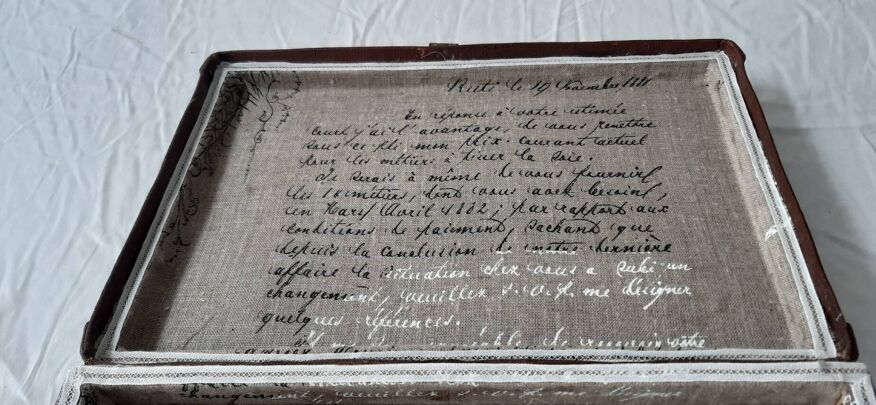 Rüti le 19 Novembre 1881
En réponse à votre estimée
Cour. j'ai l'avantage, de vous remettre
sous ce pli mon prix-courant actuel
pour les métiers à tisser la Soie.
Je serais à même de vous fournir
les 10 métiers, dont vous avez besoin,
en Mars/Avril 1882; par rapport aux
conditions de paiment, sachant que
depuis la conclusion de notre dernière
affaire la situation chez vous a subi un
changement, veuillez, s.v.p. me désigner
quelques références.
de recevoir votre
changement, veuillez s.v.p. me désigner